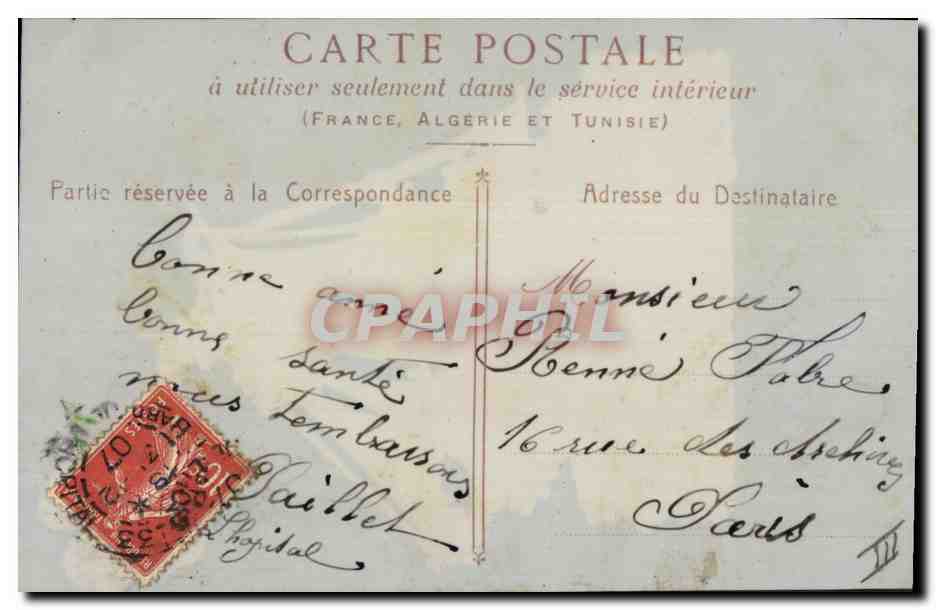 CARTE POSTALE
à utiliser seulement dans le service intérieur
(FRANCE, ALGÉRIE ET TUNISIE)
Partie réservée à la Correspondance
Adresse du Destinataire
bonne anné
bonne santé
nous t'embrassons
Paillet
Lhopital
Monsieur
Renné Fabre
16 rue des Archives
Paris
III
CPAPHIL
07